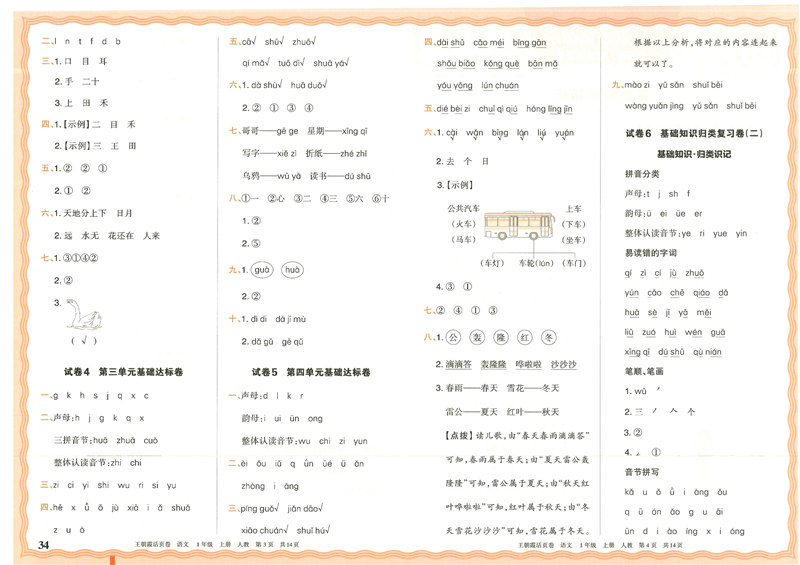 二、l n t f d b
三、1. 口 目 耳
2. 手 二十
3. 上 田 禾
四、1.【示例】二 目 禾
2.【示例】三 王 田
五、1. ② ② ①
2. ① ②
六、1. 天地分上下 日月
2. 远 水无 花还在 人来
七、1. ③①④②
2. ②
3.
( √ )
试卷4 第三单元基础达标卷
一、g k h s j q x c
二、声母:h j g k q x
三拼音节:huā zhuā cuò
整体认读音节:zhi chi
三、zi ci yi shi wu ri si yu
四、
z u ò
五、cā√ shǔ√ zhuō√
六、1. dà shù√ huā duǒ√
2. ② ① ③ ④
七、哥哥——gē ge 星期——xīng qī
写字——xiě zì 折纸——zhé zhǐ
乌鸦——wū yā 读书——dú shū
八、①一 ②心 ③二 ④三 ⑤六 ⑥十
1. ②
2. ⑤
九、1. guà huà
2. ②
十、1. dì di dà jī mù
2. dà gū gē qǔ
试卷5 第四单元基础达标卷
一、声母:d l k r
韵母:i ui ün ong
整体认读音节:wu chi zi yun
二、
zhòng i àng
三、píng guǒ√ jiǎn dāo√
xiǎo chuán√ shuǐ hú√
四、dài shǔ cǎo méi bīng gān
kǒng què bān mǎ
lún chuán
五、dié bèi zi chuī qì qiú hóng lǐng jīn
六、1.
2. 去 个 日
3.【示例】
公共汽车 上车
(火车) (下车)
(马车) (坐车)
(车灯) 车轮(lún) (车门)
4. ③ ①
七、② ④ ① ③
八、1. 公 轰 隆 红 冬
2. 滴滴答 轰隆隆 哗啦啦 沙沙沙
3. 春雨——春天 雪花——冬天
雷公——夏天 红叶——秋天
【点拨】读儿歌,由“春天春雨滴滴答”
可知,春雨属于春天;由“夏天雷公轰
隆隆”可知,雷公属于夏天;由“秋天红
叶哗啦啦”可知,红叶属于秋天;由“冬
天雪花沙沙沙”可知,雪花属于冬天。
根据以上分析,将对应的内容连起来
就可以了。
九、mào zi yǔ sǎn shuǐ bēi
wàng yuǎn jìng yǔ sǎn shuǐ bēi
试卷6 基础知识归类复习卷(二)
基础知识·归类识记
拼音分类
声母:t j sh f
韵母:ü ei üe er
整体认读音节:ye ri yue yin
易读错的字词
笔顺、笔画
2. 三
3. ②
音节拼写
34
王朝霞活页卷 语文 1年级 上册 人教 第3页 共14页
王朝霞活页卷 语文 1年级 上册 人教 第4页 共14页